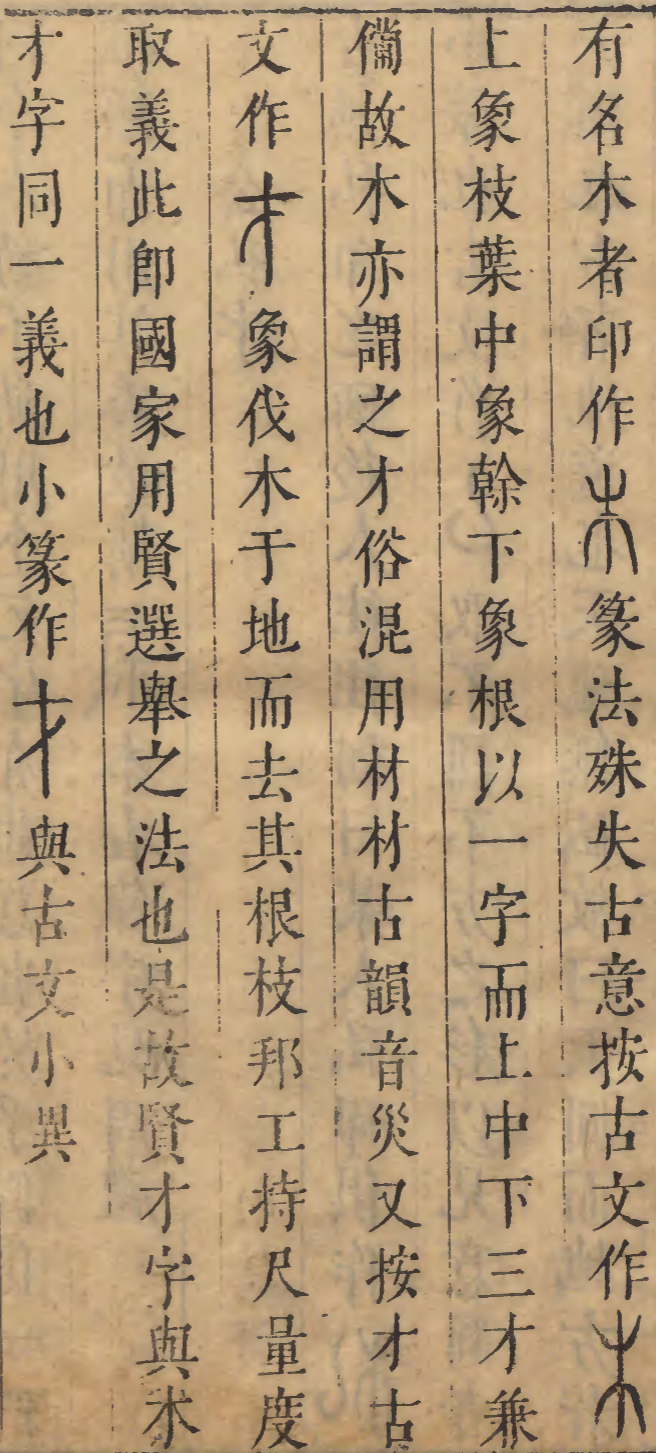 有名木者印作木篆法殊失古意按古文作木
上象枝葉中象榦下象根以一字而上中下三才兼
備故木亦謂之才俗混用材材古韻音災又按才古
文作才象伐木于地而去其根枝邦工持尺量度
取義此卽國家用賢選舉之法也是故賢才字與木
才字同一義也小篆作才與古文小異